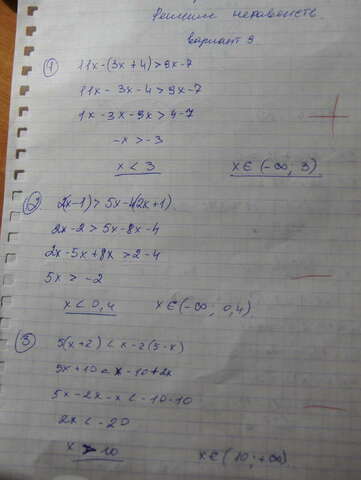 Решение неравенств
вариант 9
① 11x-(3x+4)>9x-7
11x-3x-4>9x-7
11x-3x-9x>4-7
-x>-3
x<3 x∈(-∞; 3)
② 2(x-1)>5x-4(2x+1)
2x-2>5x-8x-4
2x-5x+8x>2-4
5x>-2
x<0,4 x∈(-∞; 0,4)
③ 5(x+2)<x-2(5-x)
5x+10<x-10+2x
5x-2x-x<-10-10
2x<-20
x>10 x∈(10; +∞)